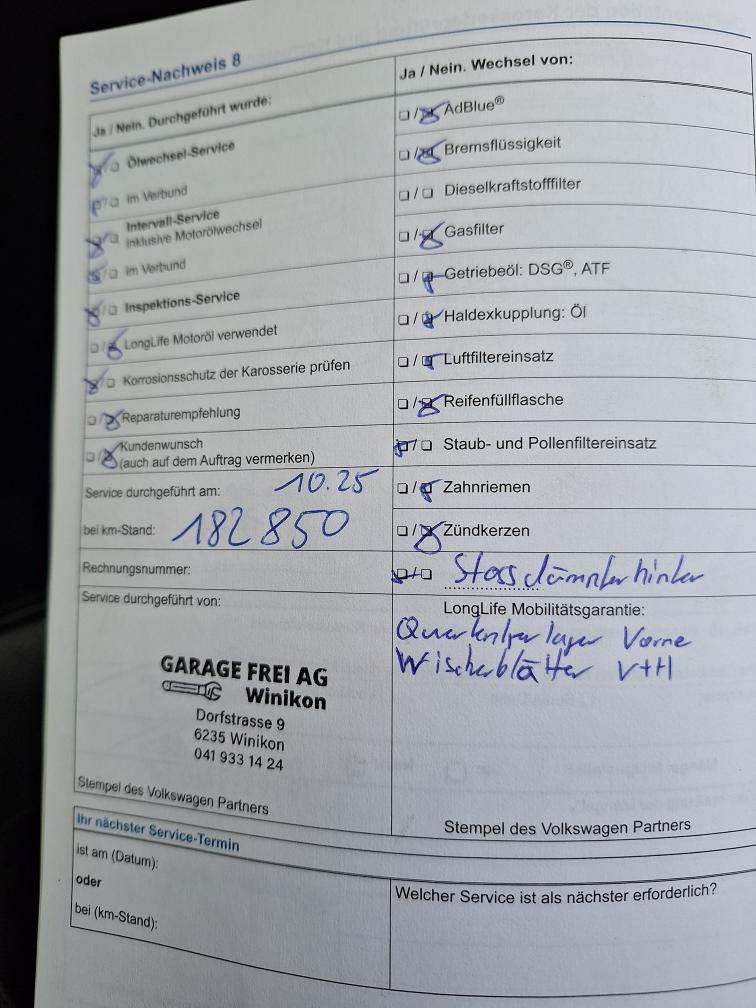 Service-Nachweis 8
Ja / Nein. Durchgeführt wurde:
Ölwechsel-Service
im Verbund
Intervall-Service
inklusive Motorölwechsel
im Verbund
Inspektions-Service
LongLife Motoröl verwendet
Korrosionsschutz der Karosserie prüfen
Reparaturempfehlung
Kundenwunsch
(auch auf dem Auftrag vermerken)
Service durchgeführt am: 10.25
bei km-Stand: 182850
Rechnungsnummer:
Service durchgeführt von:
GARAGE FREI AG
Winikon
Dorfstrasse 9
6235 Winikon
041 933 14 24
Stempel des Volkswagen Partners
Ja / Nein. Wechsel von:
AdBlue®
Bremsflüssigkeit
Dieselkraftstofffilter
Gasfilter
Getriebeöl: DSG®, ATF
Haldexkupplung: Öl
Luftfiltereinsatz
Reifenfüllflasche
Staub- und Pollenfiltereinsatz
Zahnriemen
Zündkerzen
Stossdämpfer hinten
LongLife Mobilitätsgarantie:
Querlenkerlager Vorne
Wischerblätter V+H
Stempel des Volkswagen Partners
Ihr nächster Service-Termin
ist am (Datum):
oder
bei (km-Stand):
Welcher Service ist als nächster erforderlich?